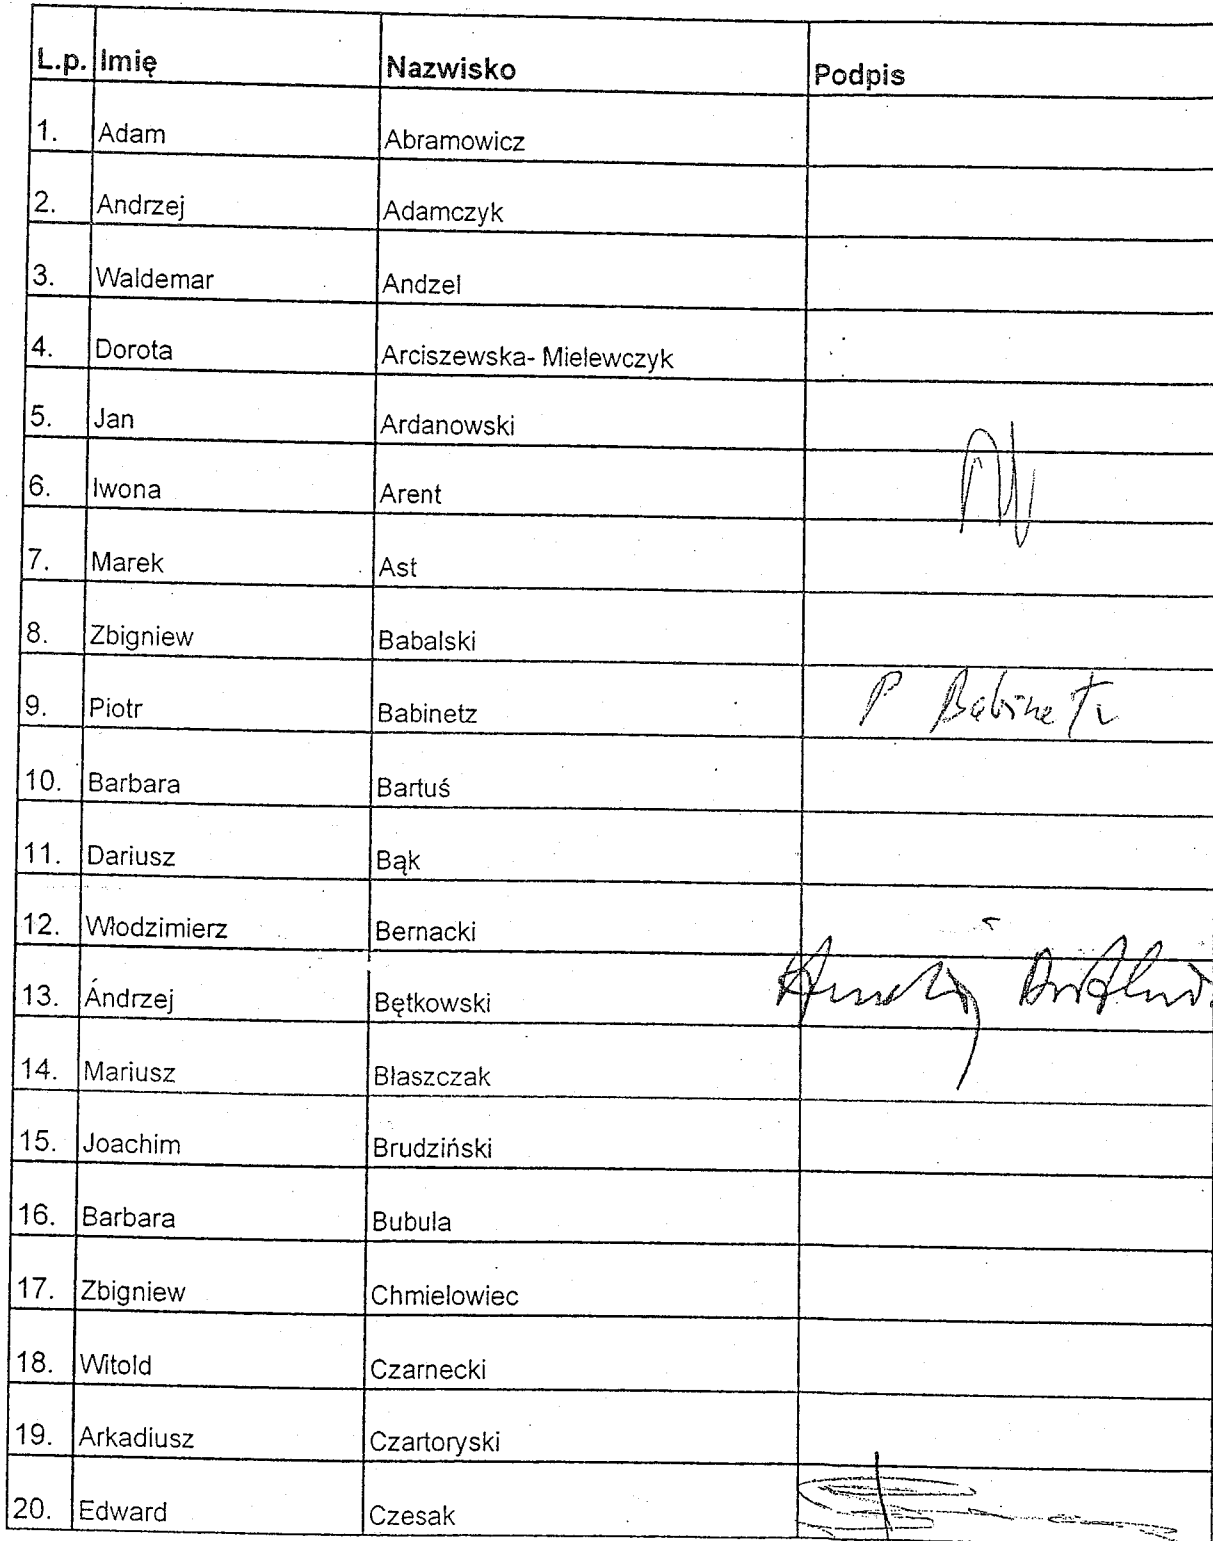 L.p. Imię Nazwisko Podpis
1. Adam Abramowicz
2. Andrzej Adamczyk
3. Waldemar Andzel
4. Dorota Arciszewska- Mielewczyk
5. Jan Ardanowski
6. Iwona Arent
7. Marek Ast
8. Zbigniew Babalski
9. Piotr Babinetz P Babinetz
10. Barbara Bartuś
11. Dariusz Bąk
12. Włodzimierz Bernacki
13. Andrzej Bętkowski Andrzej
14. Mariusz Błaszczak
15. Joachim Brudziński
16. Barbara Bubula
17. Zbigniew Chmielowiec
18. Witold Czarnecki
19. Arkadiusz Czartoryski
20. Edward Czesak